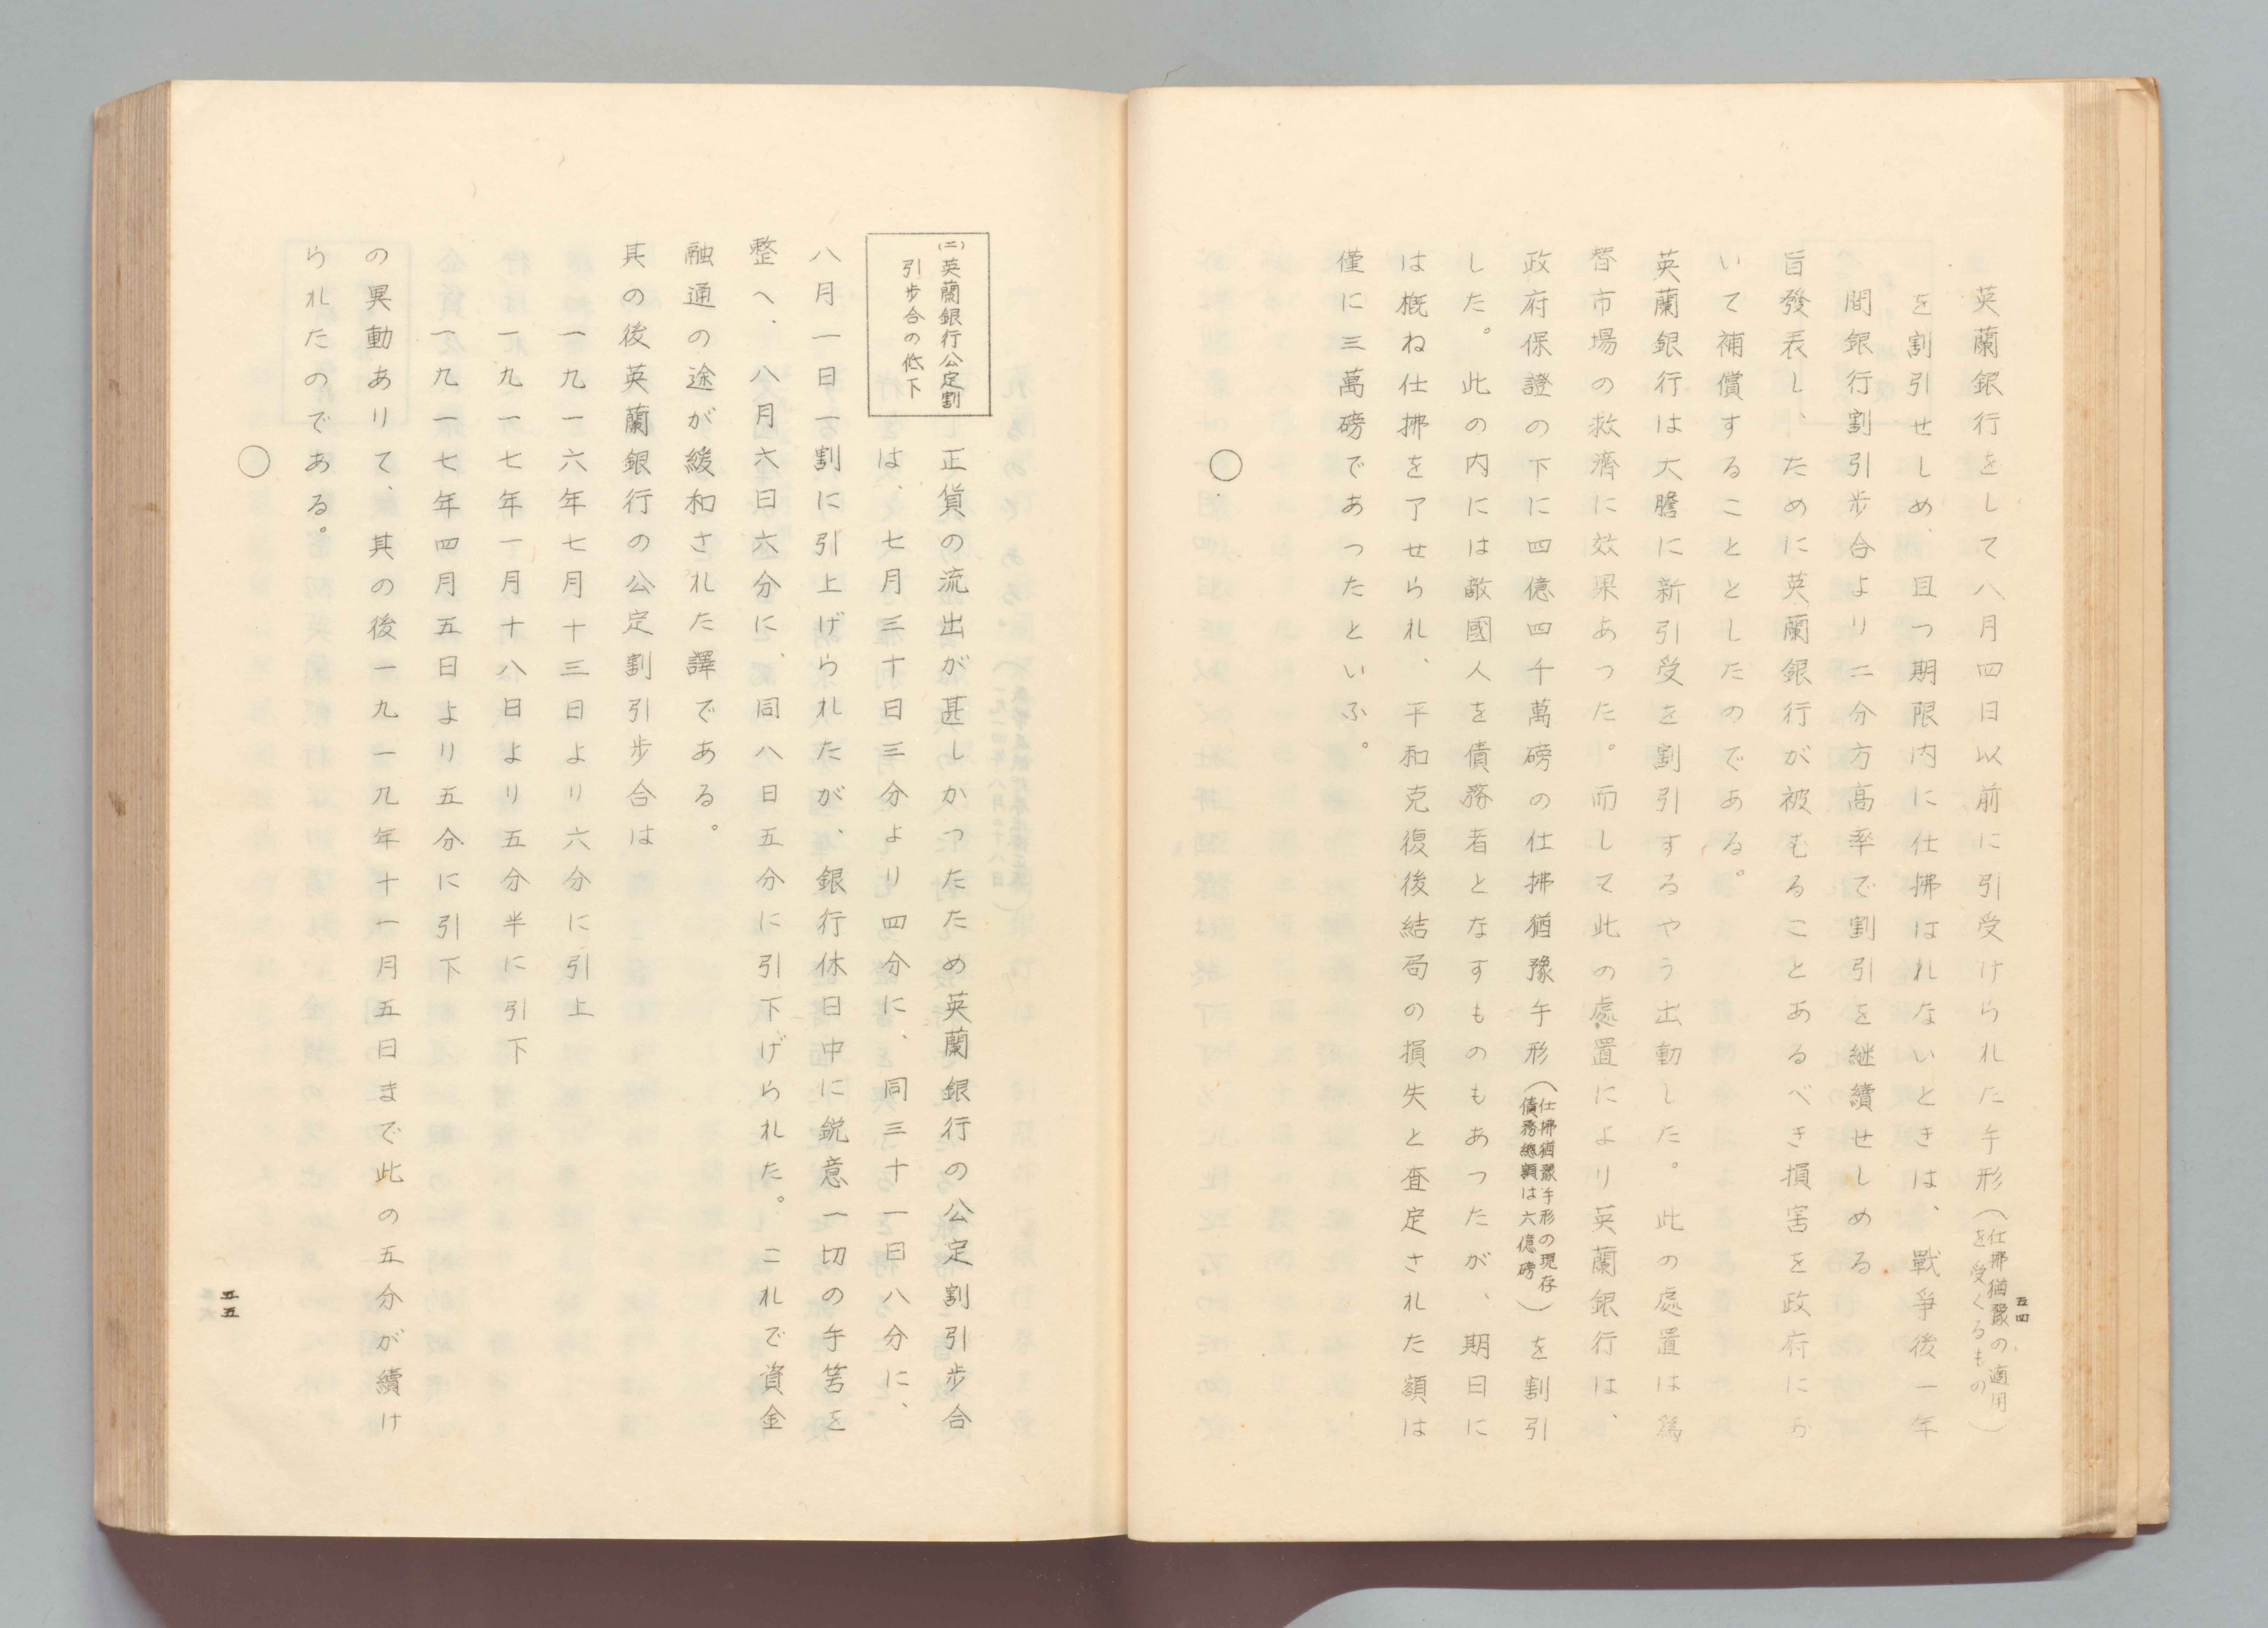 五四
英蘭銀行をして八月四日以前に引受けられた手形（仕拂猶豫の適用を受くるもの）
を割引せしめ、且つ期限内に仕拂はれないときは、戰爭後一年
間銀行割引歩合より二分方高率で割引を継續せしめる
旨發表し、ために英蘭銀行が被むることあるべき損害を政府にお
いて補償することとしたのである。
英蘭銀行は大膽に新引受を割引するやう出動した。此の處置は爲
替市場の救濟に效果あつた。而して此の處置により英蘭銀行は、
政府保證の下に四億四千萬磅の仕拂猶豫手形（仕拂猶豫手形の現存債務總額は六億磅）を割引
した。此の内には敵國人を債務者となすものもあつたが、期日に
は概ね仕拂を了せられ、平和克復後結局の損失と査定された額は
僅に三萬磅であつたといふ。
○
(二)英蘭銀行公定割
引歩合の低下
正貨の流出が甚しかつたため英蘭銀行の公定割引歩合
は、七月三十日三分より四分に、同三十一日八分に、
八月一日一割に引上げられたが、銀行休日中に鋭意一切の手筈を
整へ、八月六日六分に、同八日五分に引下げられた。これで資金
融通の途が緩和された譯である。
其の後英蘭銀行の公定割引歩合は
一九一六年七月十三日より六分に引上
一九一七年一月十八日より五分半に引下
一九一七年四月五日より五分に引下
の異動ありて、其の後一九一九年十一月五日まで此の五分が續け
られたのである。
○
五五